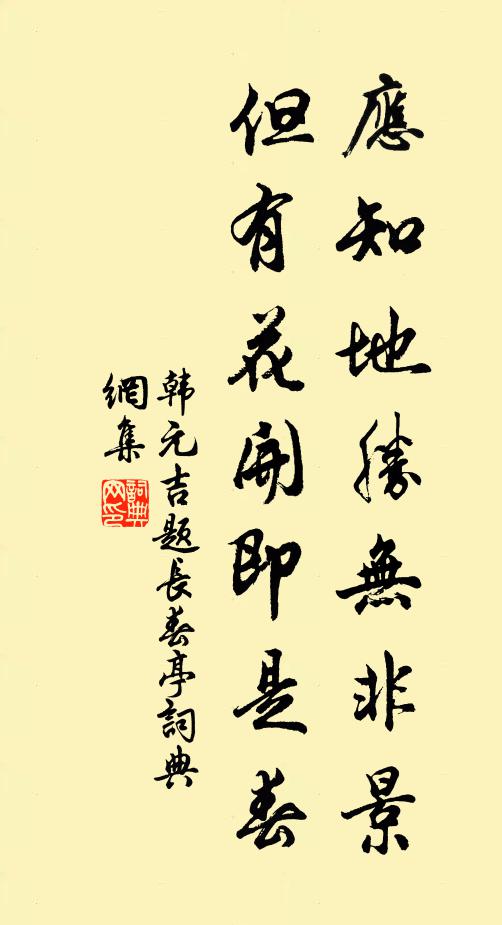 應知地勝無非景
但有花開即是春
韩元吉題長春亭詞典
網集
詞典
网印